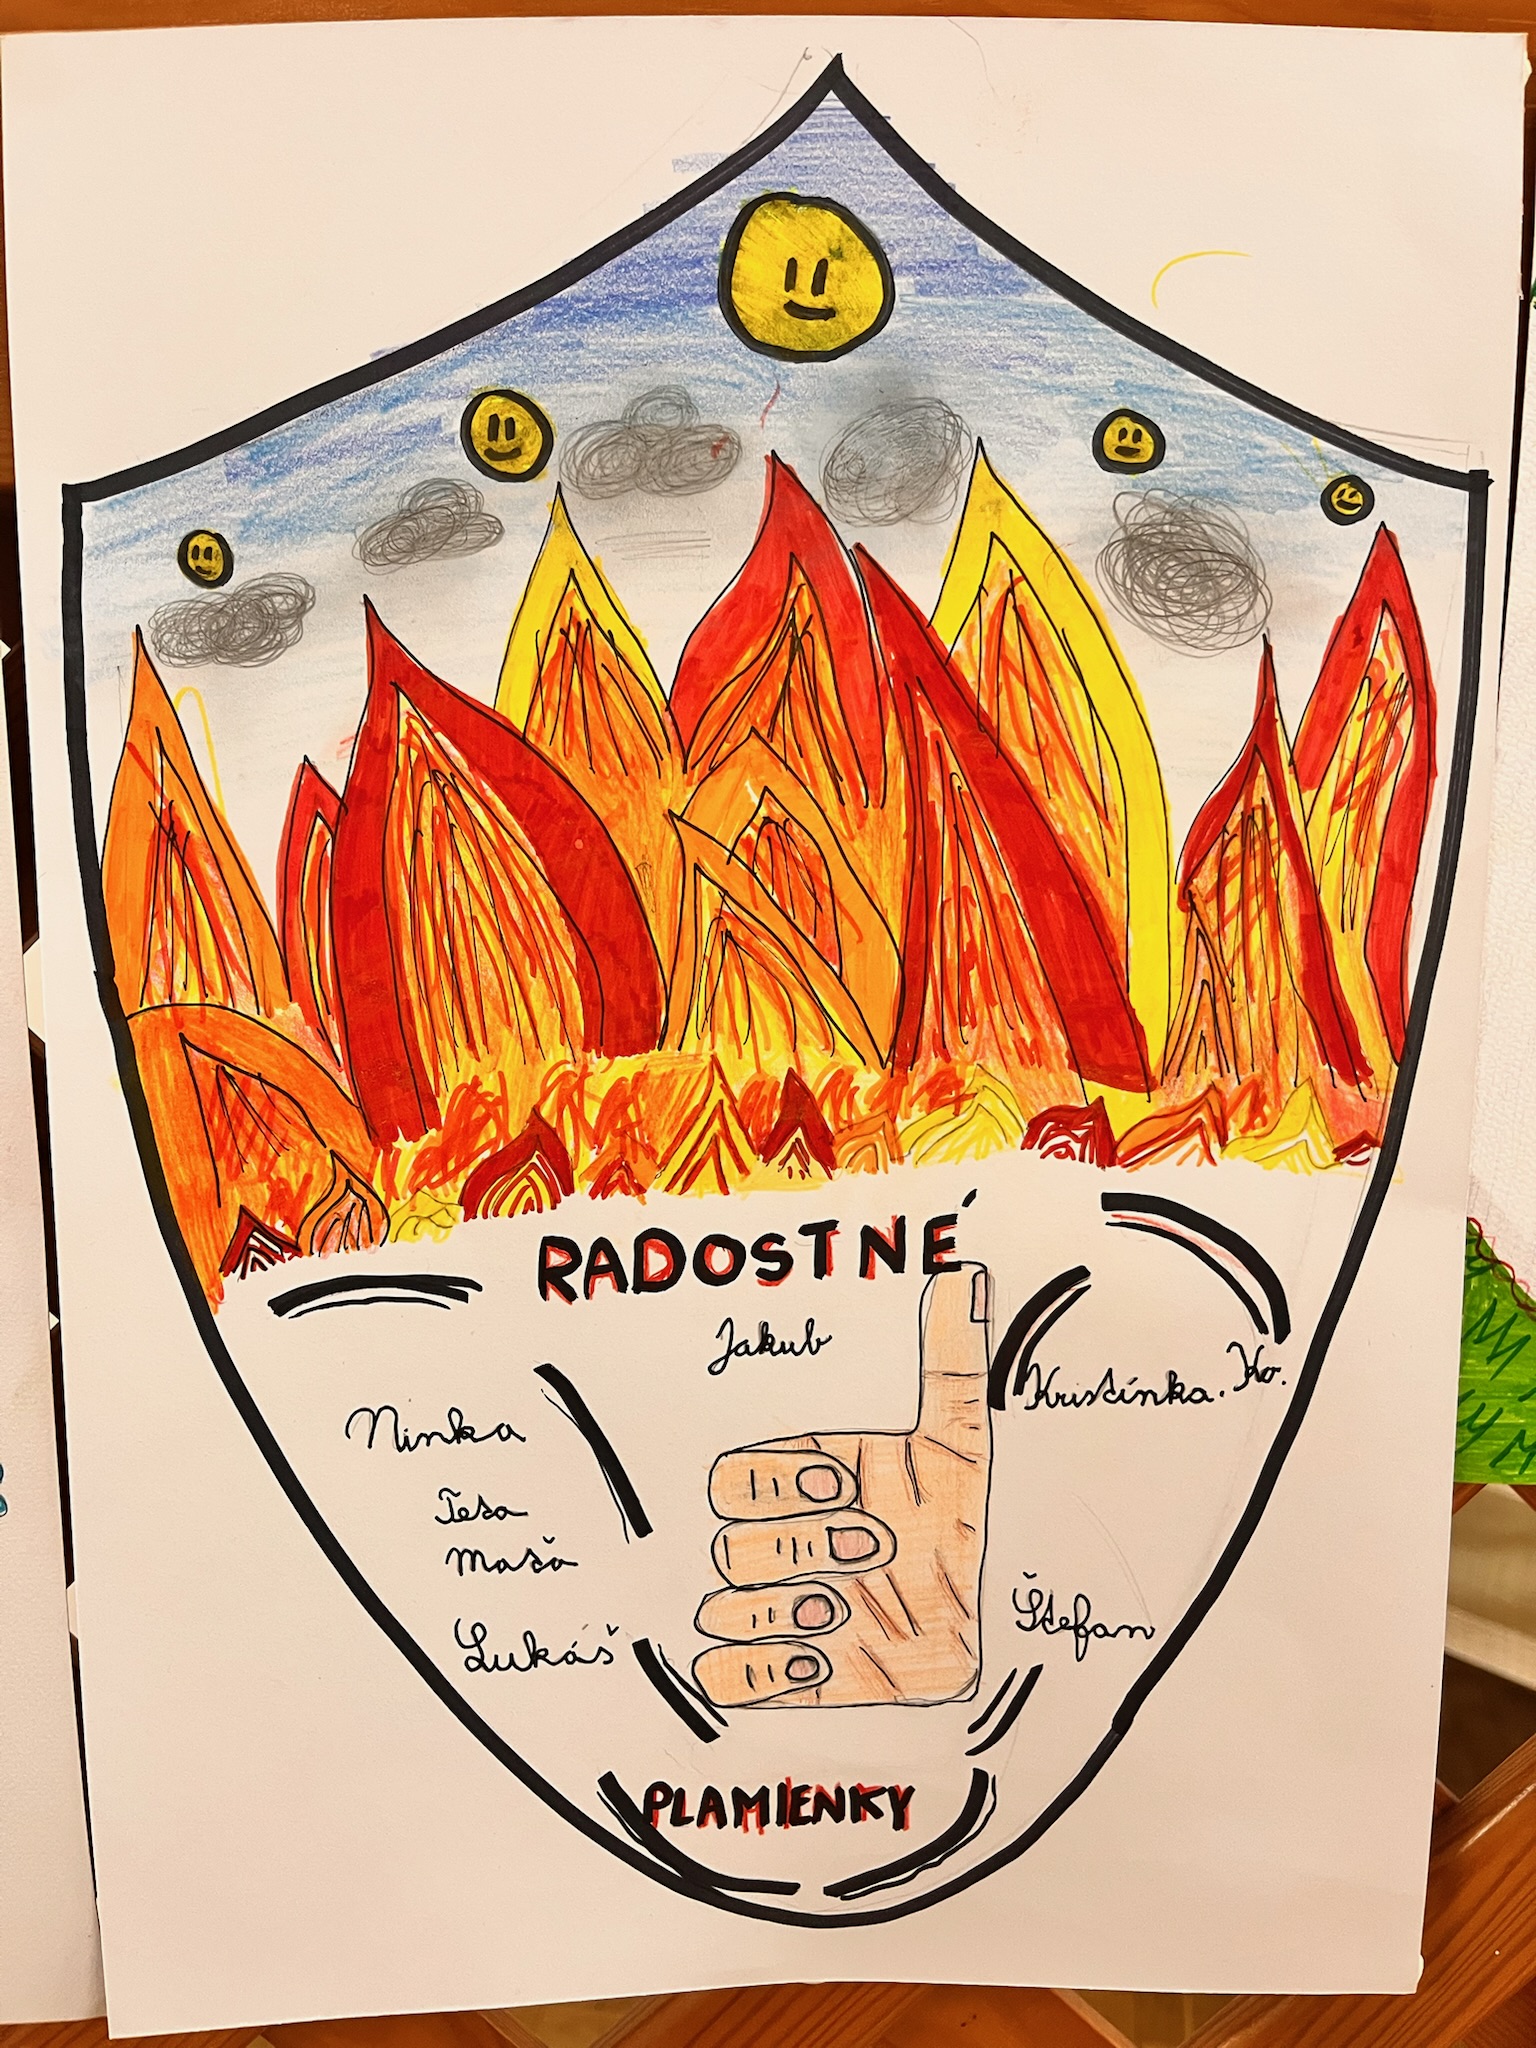 RADOSTNÉ
Jakub
Kristínka. Ko.
Ninka
Teta
Maťa
Štefan
Lukáš
PLAMIENKY